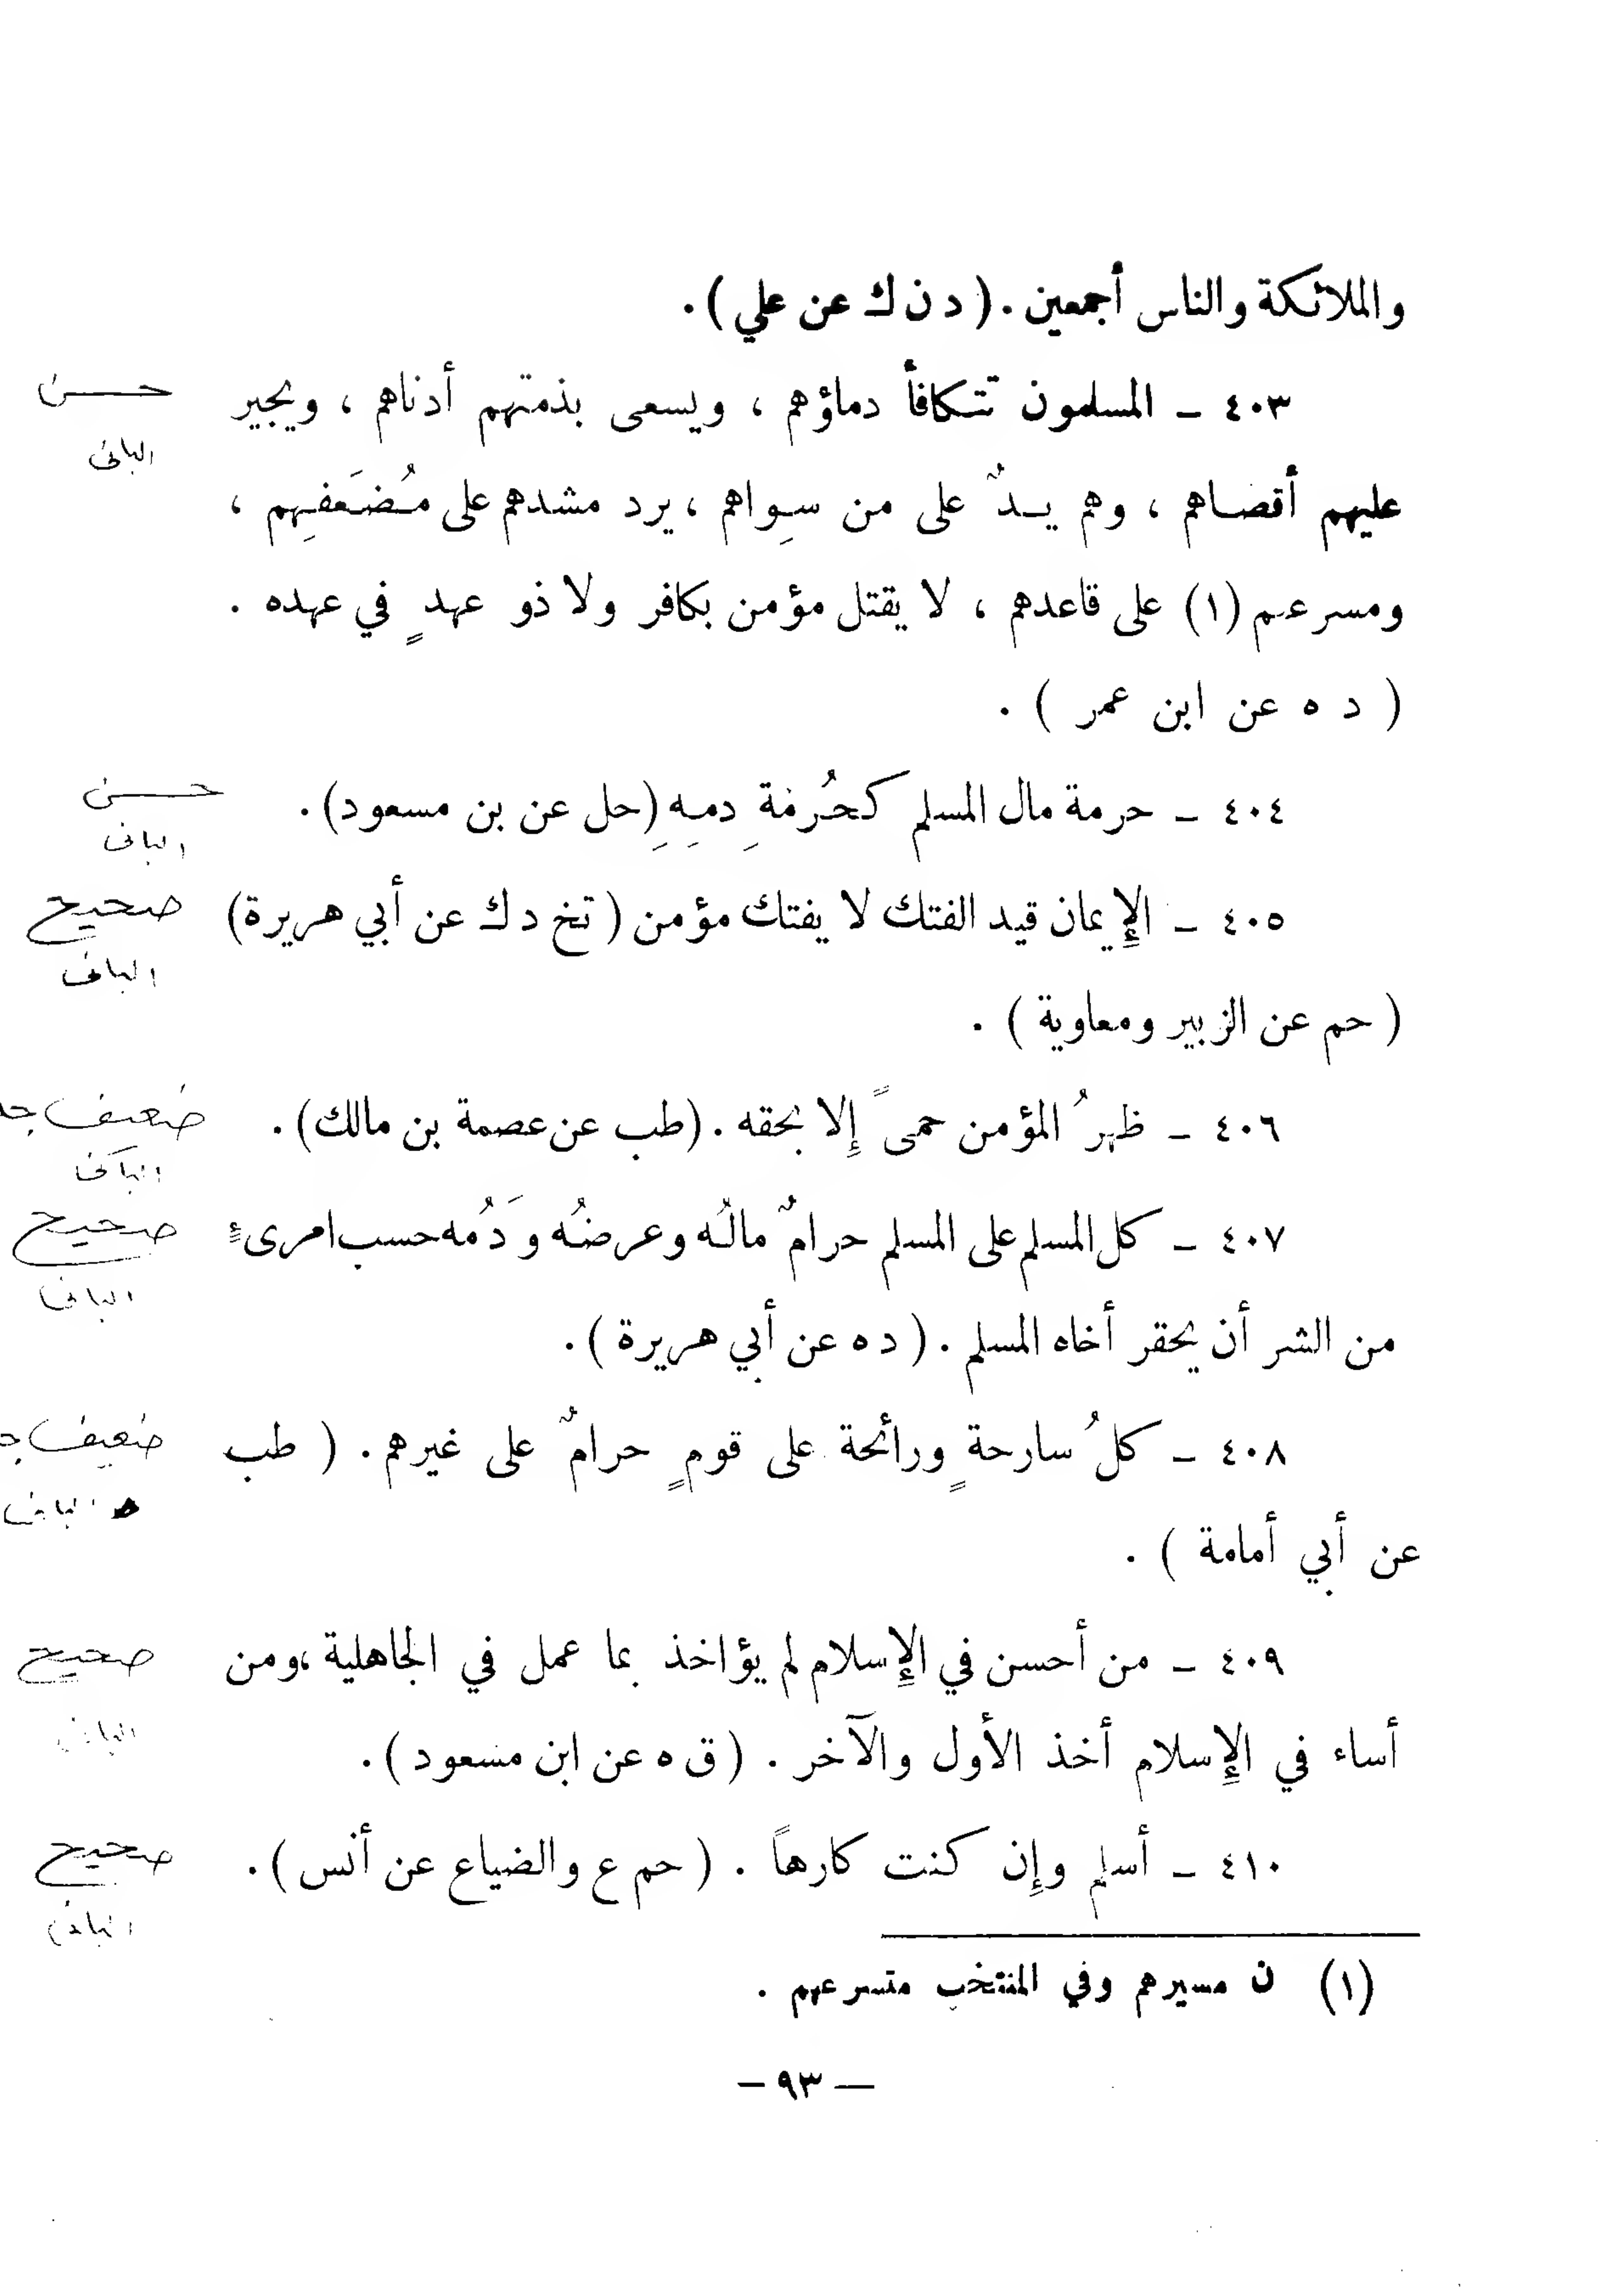 والملائكة والناس أجمعين . ( د ن ك عن علي ) .
٤٠٣ – المسلمون تتكافأ دماؤهم ، ويسعى بذمتهم أدناهم ، ويجير
حسن
الباني
عليهم أقصاهم ، وهم يدٌ على من سِواهم ، يرد مشدهم على مُضَعفِهم ،
ومسرعم (١) على قاعدهم ، لا يقتل مؤمن بكافر ولا ذو عهدٍ في عهده .
( د ه عن ابن عمر ) .
٤٠٤ – حرمة مال المسلم كحُرمةِ دمِهِ (حل عن بن مسعود) .
حسن
الباني
٤٠٥ – الإيمان قيد الفتك لا يفتك مؤمن ( تخ د ك عن أبي هريرة)
صحيح
الباني
( حم عن الزبير ومعاوية ) .
٤٠٦ – ظهرُ المؤمن حمىً إلا بحقه . (طب عن عصمة بن مالك) .
ضعيف
الباني
٤٠٧ – كل المسلم على المسلم حرامٌ مالُه وعرضُه وَدُمه حسب امرىءٍ
صحيح
الباني
من الشر أن يحقر أخاه المسلم . ( د ه عن أبي هريرة ) .
٤٠٨ – كلُ سارحةٍ ورائحة على قومٍ حرامٌ على غيرهم . ( طب
ضعيف
الباني
عن أبي أمامة ) .
٤٠٩ – من أحسن في الإسلام لم يؤاخذ بما عمل في الجاهلية ،ومن
صحيح
الباني
أساء في الإسلام أخذ الأول والآخر . ( ق ه عن ابن مسعود ) .
٤١٠ – أسلم وإن كنت كارهاً . ( حم ع والضياع عن أنس ) .
صحيح
الباني
(١) ن مسيرهم وفي المنتخب متسرعهم .
– ٩٣ –